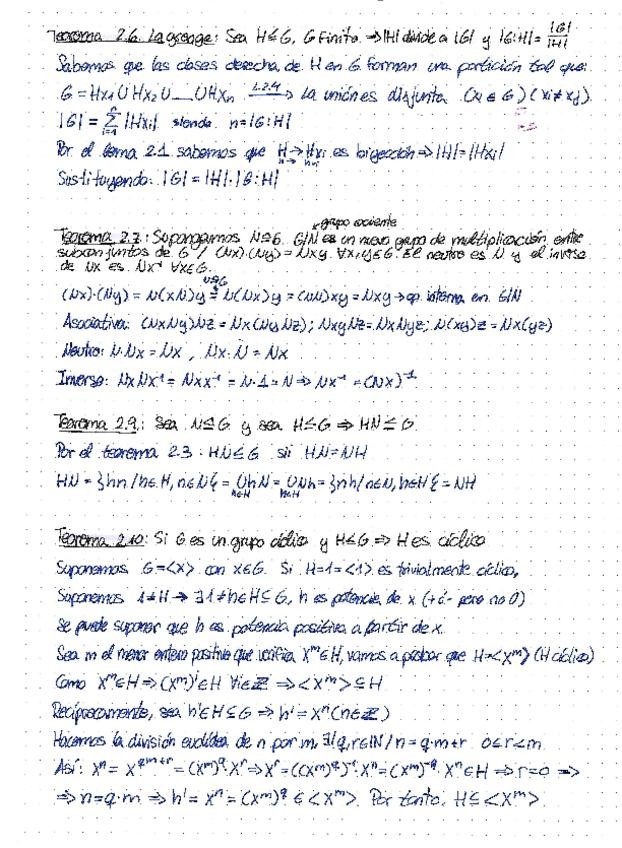 Teorema 2.6. Lagrange: Sea H≤G, G finito ⇒ |H| divide a |G| y |G:H| = |G|/|H|
Sabemos que las clases derecha de H en G forman una partición tal que:
G = Hx₁ ∪ Hx₂ ∪ ... ∪ Hxₙ 1.2.4 → la unión es disjunta (xᵢ ∈ G) (xᵢ ≠ xⱼ).
|G| = Σⁿᵢ₌₁ |Hxᵢ| siendo n = |G:H|
Por el lema 2.1 sabemos que H → Hxᵢ es biyección ⇒ |H| = |Hxᵢ|
Sustituyendo: |G| = |H|·|G:H|
grupo cociente
Teorema 2.7: Supongamos N⊴G. G/N es un nuevo grupo de multiplicación entre
subconjuntos de G / (Nx)·(Ny) = Nxy ∀x,y∈G. El neutro es N y el inverso
de Nx es Nx⁻¹ ∀x∈G.
(Nx)·(Ny) = N(xN)y =(N⊴G) N(Nx)y = (NN)xy = Nxy → op. interna en G/N
Asociativa: (NxNy)Nz = Nx(NyNz); NxyNz = NxNyz; N(xy)z = Nx(yz)
Neutro: N·Nx = Nx, Nx·N = Nx
Inverso: NxNx⁻¹ = Nxx⁻¹ = N·1 = N ⇒ Nx⁻¹ = (Nx)⁻¹
Teorema 2.9.: Sea N⊴G y sea H≤G ⇒ HN≤G
Por el teorema 2.3: HN≤G sii HN=NH
HN = {hn / h∈H, n∈N} = ∪ hN = ∪ Nh = {nh / n∈N, h∈H} = NH
h∈H h∈H
Teorema 2.10: Si G es un grupo cíclico y H≤G ⇒ H es cíclico
Suponemos G=<x> con x∈G. Si H=1=<1> es trivialmente cíclico,
Suponemos 1≠H → ∃1≠h∈H≤G, h es potencia de x (+ ó - pero no 0)
Se puede suponer que h es potencia positiva a partir de x.
Sea m el menor entero positivo que verifica xᵐ∈H, vamos a probar que H=<xᵐ> (H cíclico)
Como xᵐ∈H ⇒ (xᵐ)ⁱ∈H ∀i∈ℤ ⇒ <xᵐ> ⊆ H
Recíprocamente, sea h'∈H≤G ⇒ h' = xⁿ (n∈ℤ)
Hacemos la división euclídea de n por m, ∃! q,r∈ℕ / n=q·m+r 0≤r<m
Así: xⁿ = x^(qm+r) = (xᵐ)^q·xʳ ⇒ xʳ = ((xᵐ)^q)⁻¹·xⁿ = (xᵐ)^-q·xⁿ∈H ⇒ r=0 ⇒
⇒ n=q·m ⇒ h' = xⁿ = (xᵐ)^q ∈ <xᵐ>. Por tanto, H≤<xᵐ>